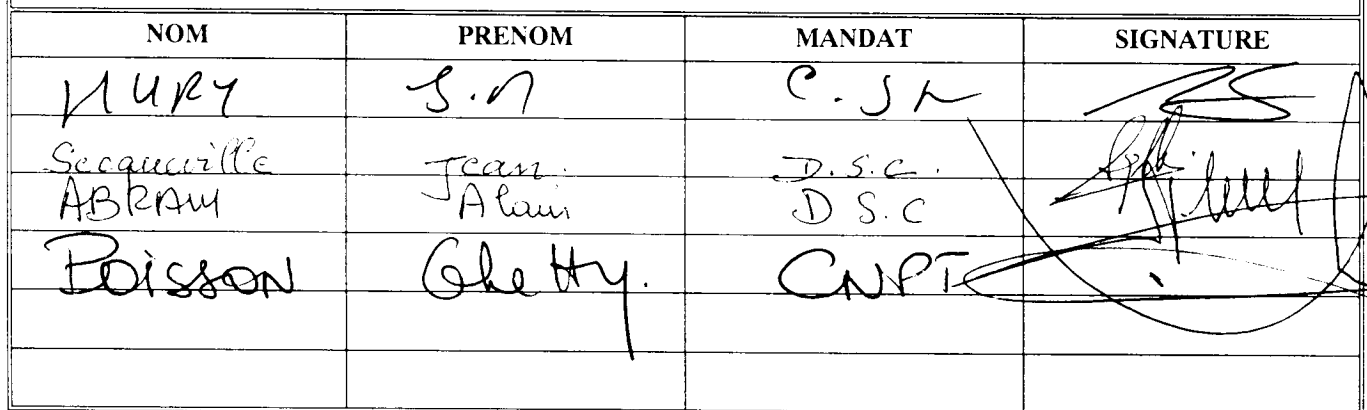 NOM PRENOM MANDAT SIGNATURE
MURY J.M C.
Secqueville Jean. D.S.C.
ABRAM Alain D S.C
POISSON Ghetty. CNPT